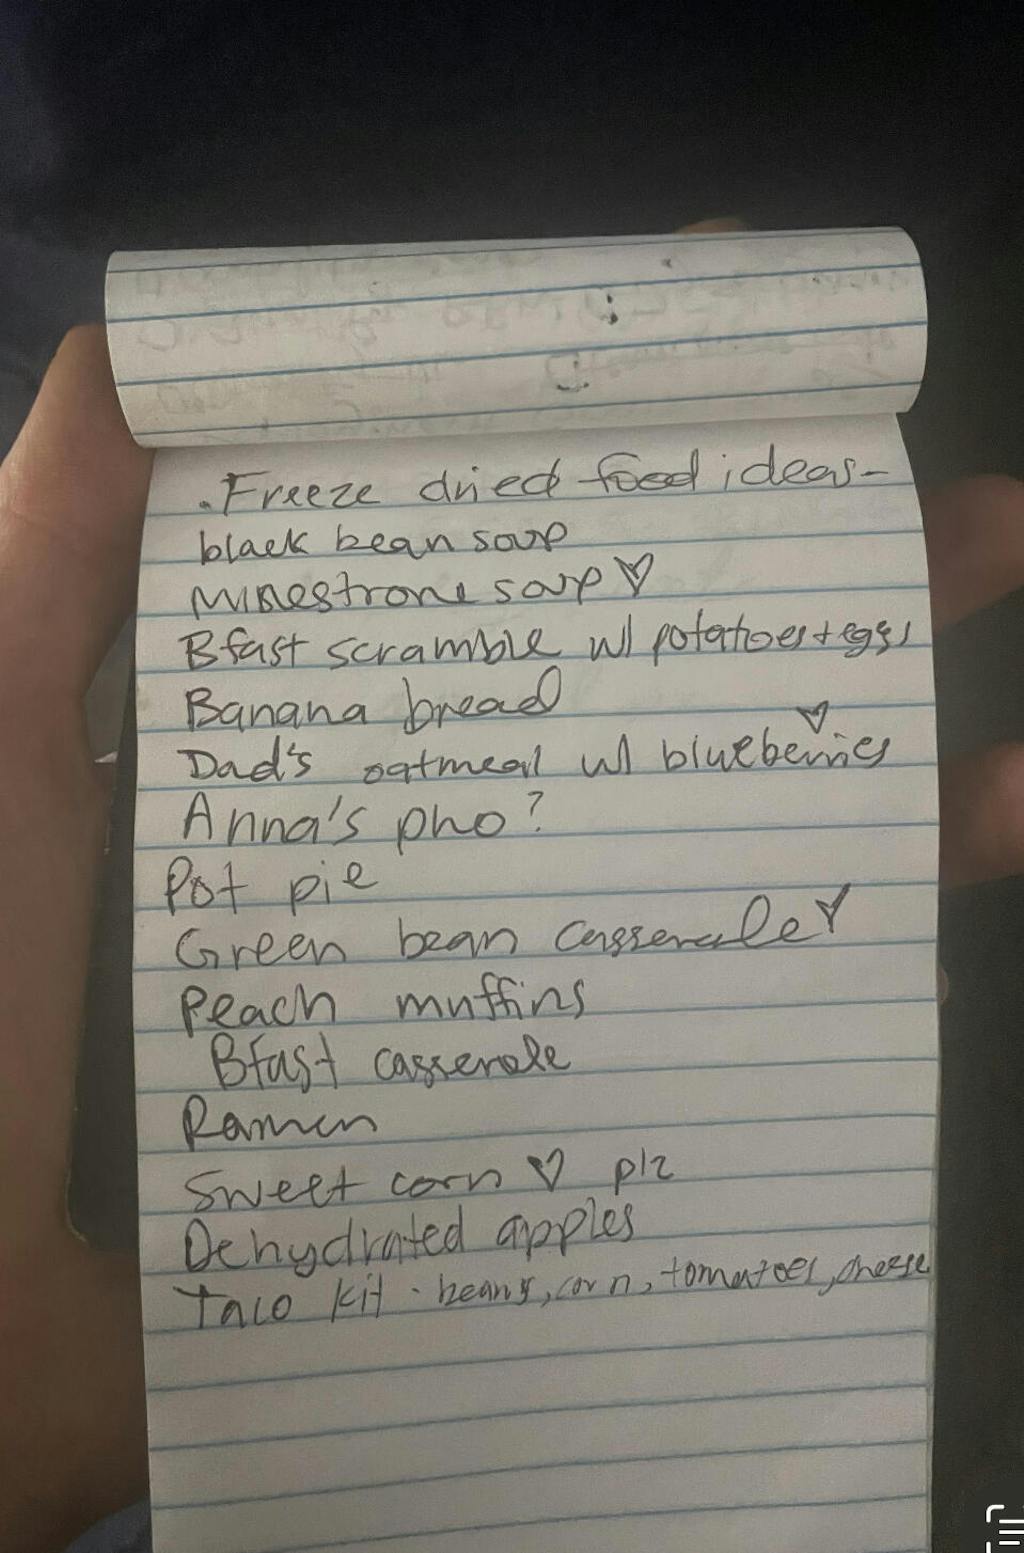 .Freeze dried food ideas-
black bean soup
Minestrone soup ♡
Bfast scramble w/ potatoes + eggs
Banana bread
Dad's oatmeal w/ blueberries ♡
Anna's pho?
Pot pie
Green bean casserole ♡
Peach muffins
Bfast casserole
Ramen
Sweet corn ♡ plz
Dehydrated apples
Taco kit · beans, corn, tomatoes, cheese